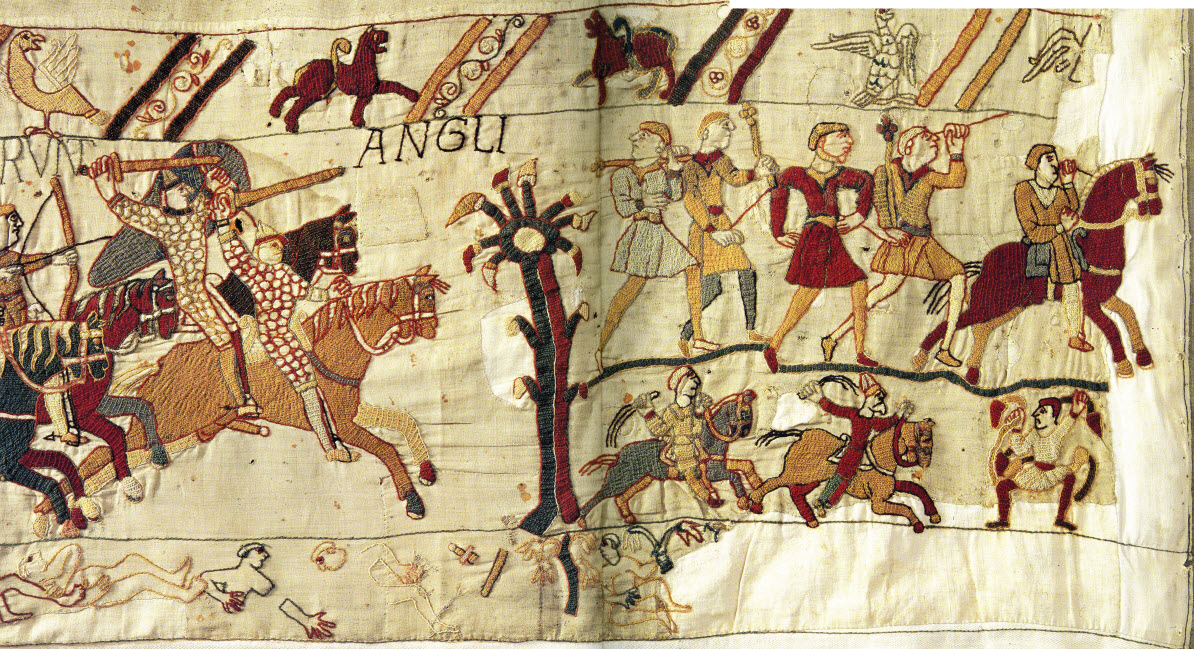 RVNT ANGLI